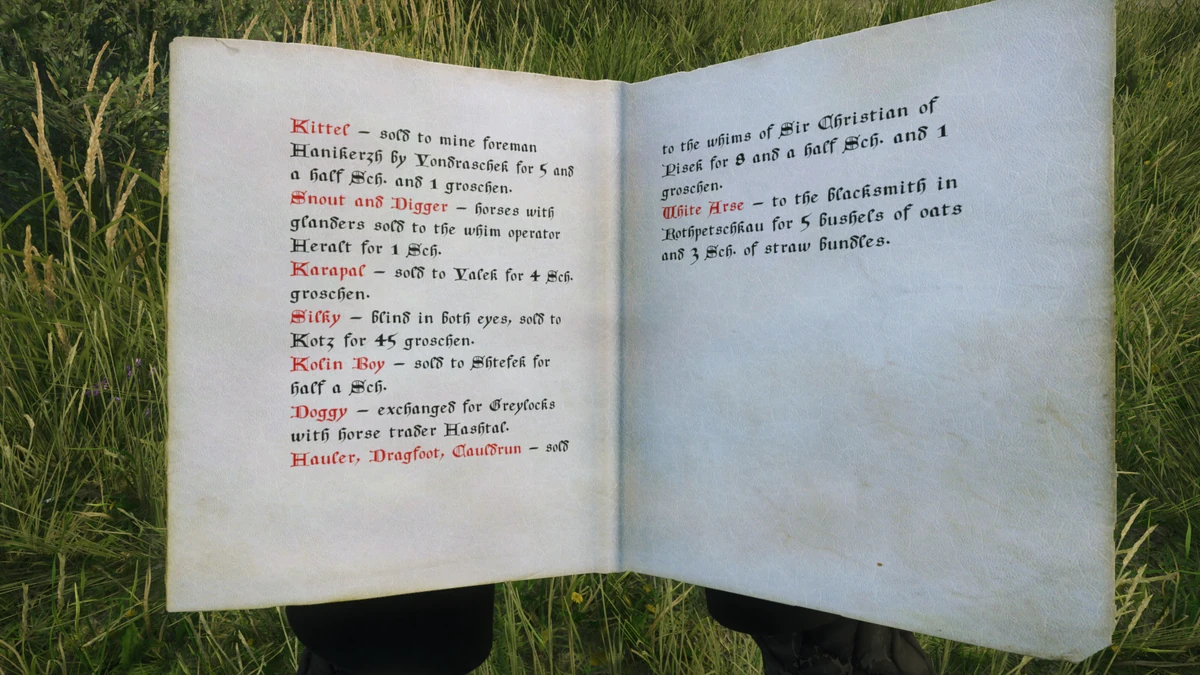 Kittel – sold to mine foreman
Hanikerzh by Vondraschek for 5 and
a half Sch. and 1 groschen.
Snout and Digger – horses with
glanders sold to the whim operator
Heralt for 1 Sch.
Karapal – sold to Valek for 4 Sch.
groschen.
Silky – blind in both eyes, sold to
Kotz for 45 groschen.
Kolin Boy – sold to Shtefek for
half a Sch.
Doggy – exchanged for Greylocks
with horse trader Hashtal.
Hauler, Dragfoot, Cauldrun – sold
to the whims of Sir Christian of
Pisek for 8 and a half Sch. and 1
groschen.
White Arse – to the blacksmith in
Rothpetschkau for 5 bushels of oats
and 3 Sch. of straw bundles.